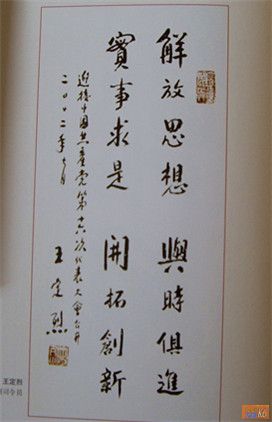 解放思想 與時俱進
實事求是 開拓創新
迎接中國共產党第十六次代表大會召开
二〇〇二年七月
王定烈
王定烈
司令员